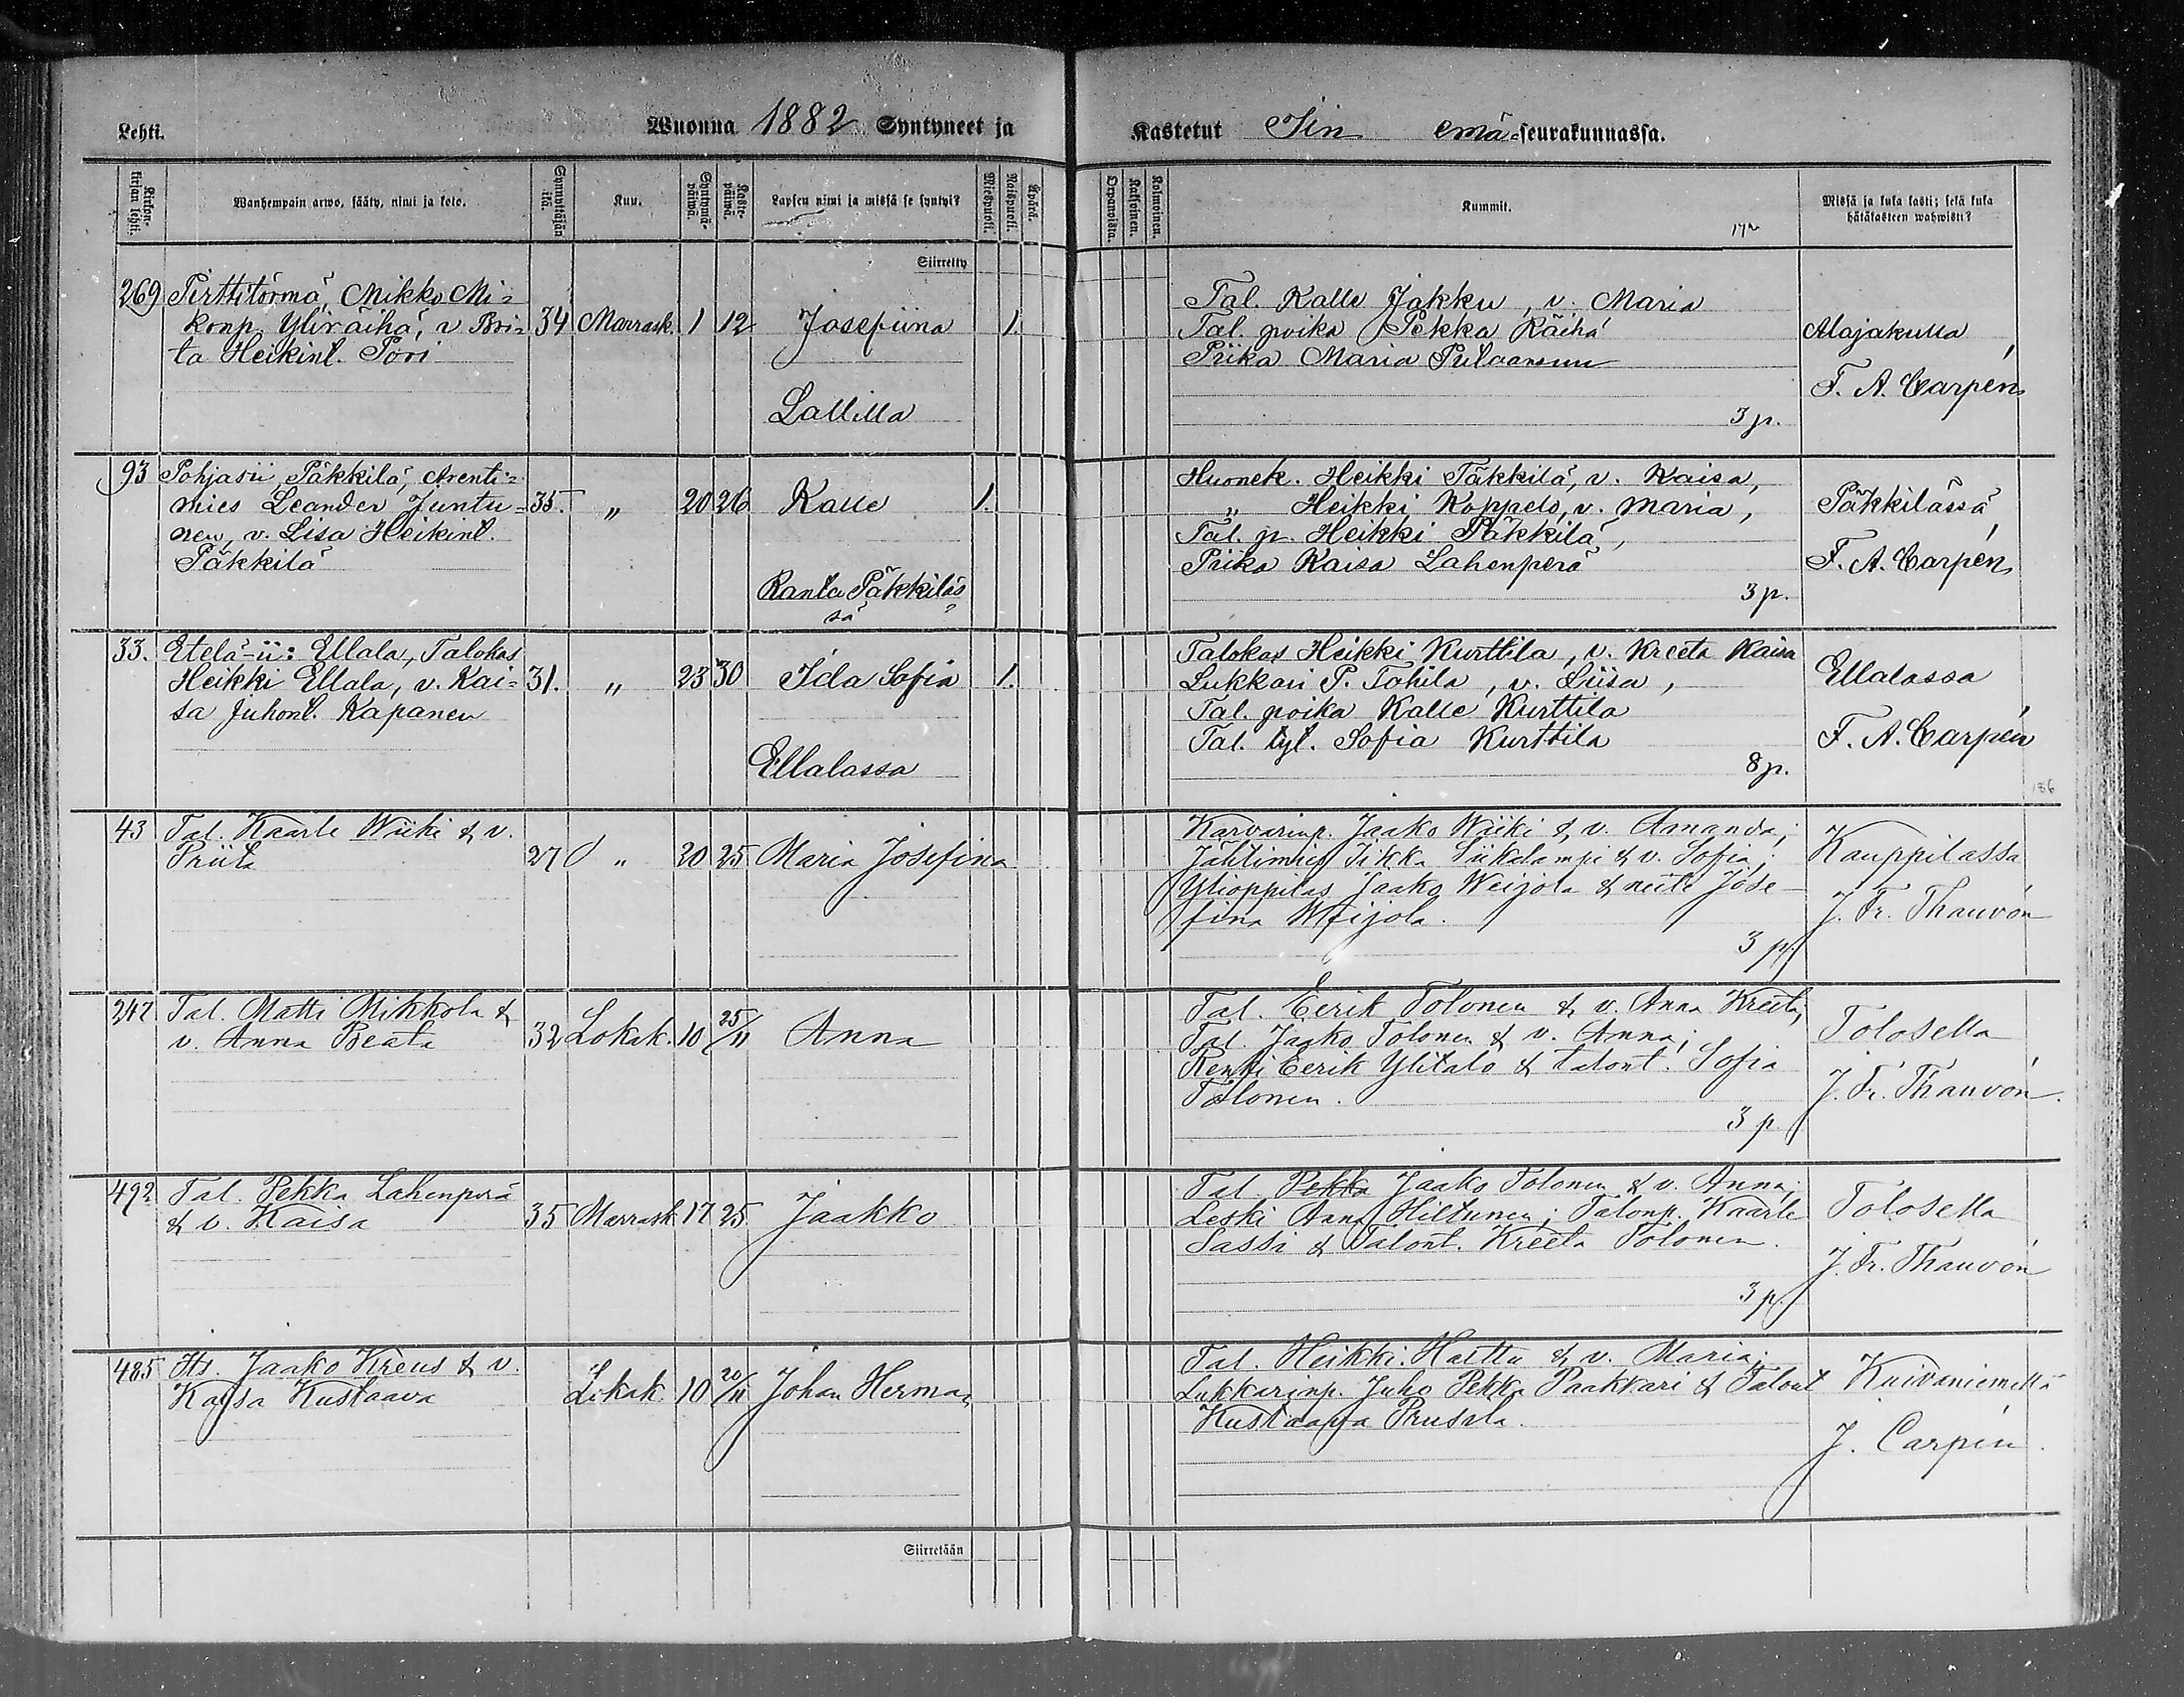 Lehti. Wuonna 1882 Syntyneet ja Kastetut Iin emä-seurakunnassa.
Kirkonkirjan lehti. Wanhempain arwo, sääty, nimi ja koto. Synnyttäjän ikä. Kuu. Syntymäpäiwä. Kastepäiwä. Lapsen nimi ja missä se syntyi? Miespuoli. Naispuoli. Äpärä.
Orpanoista. Kaksoinen. Kolmoinen. Kummit. Missä ja kuka kasti; sekä kuka hätäkasteen wahwisti?
Siirretty
269 Pirttitörmä, Mikko Mi=
konp. Yliräihä, v Bri= 34 Marrask. 1 12 Josefiina 1.
ta Heikint. Pori
Lallilla
Tal. Kalle Jakku, v. Maria
Tal. poika Pekka Räihä
Piika Maria
3 p.
Alajakulla
F. A. Carpén
93 Pohjasii, Päkkilä, Arenti=
mies Leander Juntu= 35. " 20 26 Kalle 1.
nen, v. Lisa Heikint.
Päkkilä
Ranta Päkkiläs
sä
Huonek. Heikki Päkkilä, v. Kaisa,
" Heikki Koppelo, v. Maria,
Tal. p. Heikki Päkkilä,
Piika Kaisa Lahenperä
3 p.
Päkkilässä
F. A. Carpén
33. Etelä-ii: Ellala, Talokas
Heikki Ellala, v. Kai= 31. " 23 30 Ida Sofia 1.
sa Juhont. Kapanen
Ellalassa
Talokas Heikki Kurttila, v. Kreeta Kaisa
Lukkari P. Tohila, v. Liisa,
Tal. poika Kalle Kurttila
Tal. tyt. Sofia Kurttila
8 p.
Ellalassa
F. A. Carpén
43 Tal. Kaarle Wiiki & v.
Priita 27 " 20 25 Maria Josefina
Karvarinp. Jaako Wiiki & v. Amanda;
Jahtimies Iikka Siikalampi & v. Sofia;
Ylioppilas Jaako Weijola & neiti Jose-
fina Weijola.
3 p.
Kauppilassa
J. Fr. Thauvón
247 Tal. Matti Mikkola &
v. Anna Beata 32 Lokak. 10 25/11 Anna
Tal. Eerik Tolonen & v. Anna Kreeta;
Tal. Jaako Tolonen & v. Anna;
Renki Eerik Ylitalo & talont. Sofia
Tolonen.
3 p
Tolosella
J. Fr. Thauvón.
492 Tal. Pekka Lahenperä
& v. Kaisa 35 Marrask. 17 25 Jaakko
Tal. Pekka Jaako Tolonen & v. Anna;
Leski Anna Hiltunen; Talonp. Kaarle
Sassi & Talont. Kreeta Tolonen.
3 p.
Tolosella
J. Fr. Thauvón
485 Its. Jaako Kreus & v.
Kaisa Kustaava Lokak. 10 20/11 Johan Herman
Tal. Heikki Hattu & v. Maria;
Lukkarinp. Juho Pekka Paakkari & Talont
Kustaava Prusila.
Kuivaniemellä
J. Carpén.
Siirretään